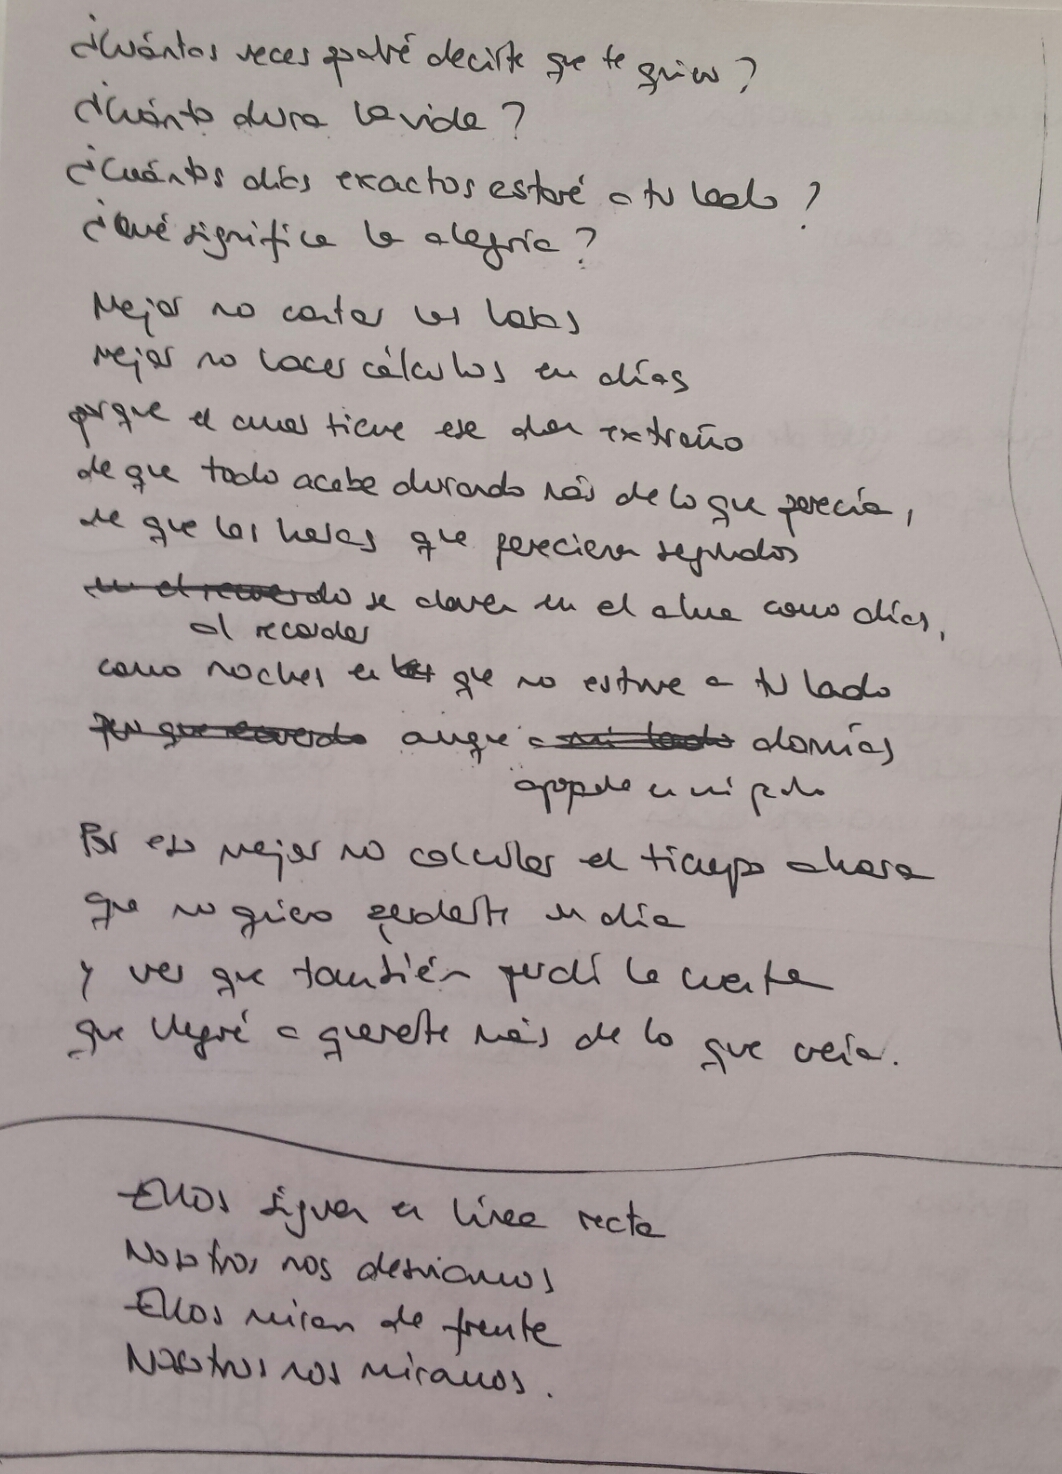 ¿Cuántas veces podré decirte que te quiero?
¿Cuánto dura la vida?
¿Cuántos días exactos estaré a tu lado?
¿Qué significa la alegría?
Mejor no contar las horas
Mejor no hacer cálculos en días
porque el amor tiene ese don extraño
de que todo acabe durando más de lo que parecía,
de que las horas que parecieran segundos
en el recuerdo se claven en el alma como días,
al recordar
como noches en las que no estuve a tu lado
aunque a mi lado dormías
en mi
Por eso mejor no calcular el tiempo ahora
que no quiero perderte un día
y ver que también perdí la cuenta
que llegué a quererte más de lo que creía.
Ellos siguen en línea recta
Nosotros nos desviamos
Ellos miran de frente
Nosotros nos miramos.